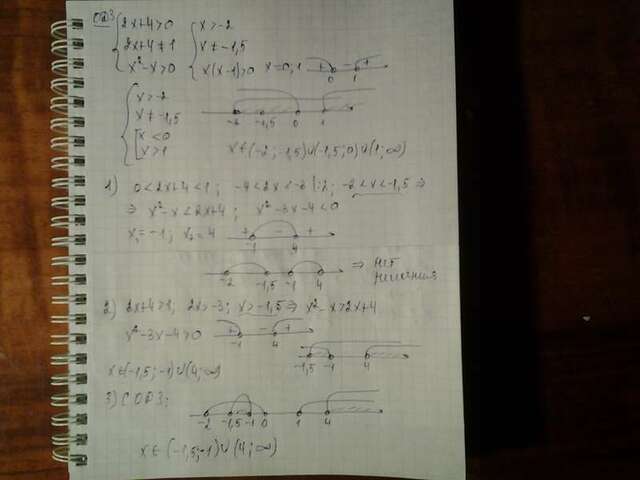 ОДЗ { 2x+4>0 { x>-2
2x+4≠1 x≠-1,5
x²-x>0 x(x-1)>0 x=0,1 + - +
0 1
{ x>-2
x≠-1,5
[ x<0
x>1
-2 -1,5 0 1
x∈(-2; -1,5)∪(-1,5; 0)∪(1; ∞)
1) 0<2x+4<1; -4<2x<-3 |:2; -2<x<-1,5 ⇒
⇒ x²-x<2x+4; x²-3x-4<0
x₁=-1; x₂=4 + - +
-1 4
-2 -1,5 -1 4 ⇒ нет
решения
2) 2x+4>1; 2x>-3; x>-1,5 ⇒ x²-x>2x+4
x²-3x-4>0 + - +
-1 4
-1,5 -1 4
x∈(-1,5; -1)∪(4; ∞)
3) С ОДЗ:
-2 -1,5 -1 0 1 4
x∈(-1,5; -1)∪(4; ∞)